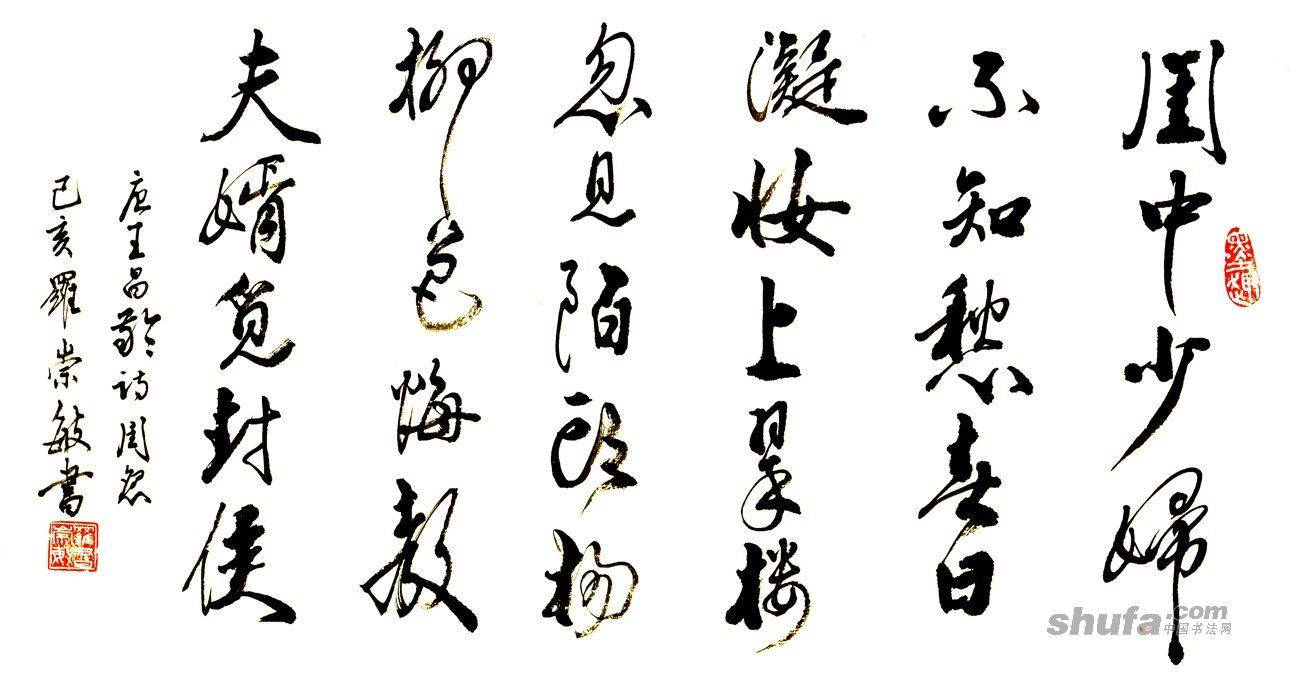 闺中少婦
不知愁春日
凝妆上翠楼
忽见陌头杨
柳色悔教
夫婿觅封侯
唐王昌龄诗闺怨
己亥羅崇敏書
shufa.com
中国书法网